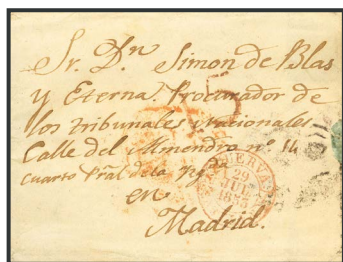 Sr. Dn. Simon de Blas
y Eterna Procurador de
los tribunales nacionales
Calle del Almendro nº 14
cuarto Pral de la
en
Madrid.
5
29
JUL